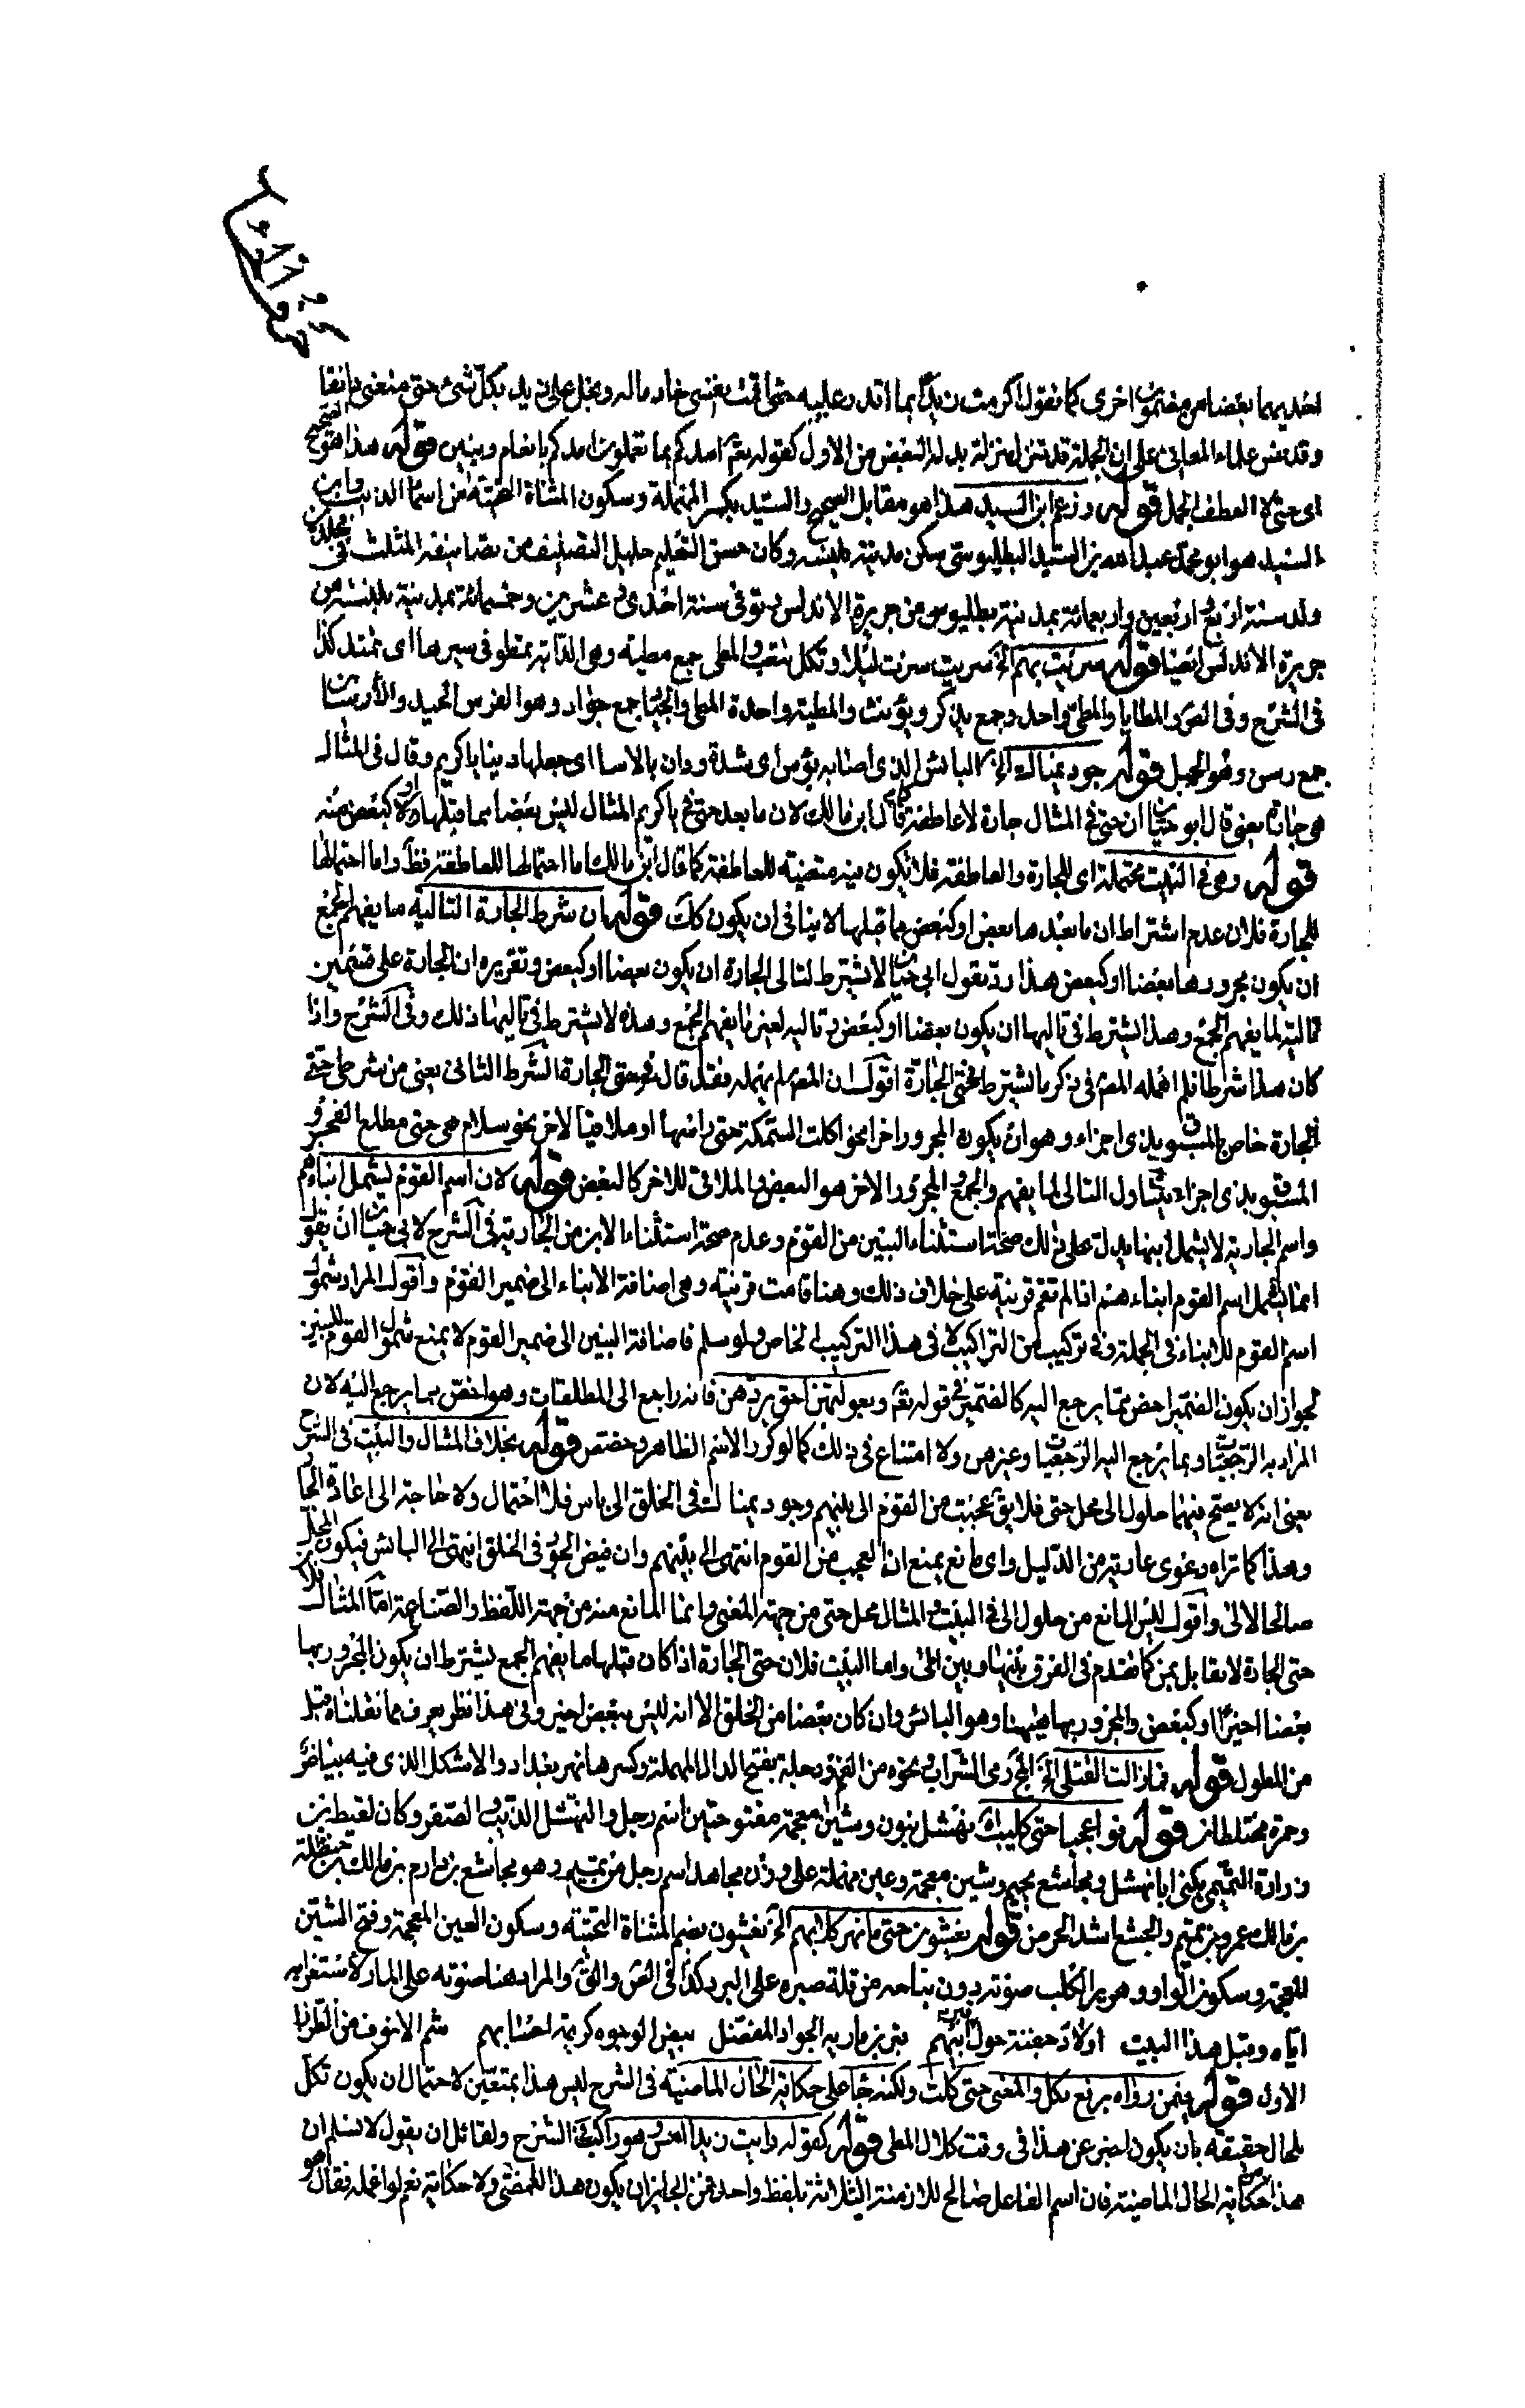 احديهما بعضا من مضمون اخرى كما تقول اكرمت زيدا بما اقدر عليه حتى اقمت نفسى خادما له وبخل على زيد بكل شئ حتى منعنى دانقا
وقد نص علماء المعانى على ان الجملة قد تنزل منزلة بدل البعض من الاول كقوله تعم امدكم بما تعلمون امدكم بانعام وبنين قوله هذا هو الصحيح
اى حتى لا تعطف الجمل قوله وزعم ابن السيد هذا هو مقابل الصحيح والسيد بكسر المهملة وسكون المثناة التحتية من اسماء الذئب وابن
السيد هو ابو محمد عبد الله بن السيد البطليوسى سكن مدينة بلنسية وكان حسن التعليم جليل التصليف من تصانيفه المثلث فى مجلدين
ولد سنة اربع واربعين واربعمائة بمدينة بطليوس من جزيرة الاندلس وتوفى سنة احدى وعشرين وخمسمائة بمدينة بلنسية من
جزيرة الاندلس ايضا قوله سريت بهم الخ سريت سرت ليلا وتكل تتعب والمطى جمع مطية وهى الدابة تمطو فى سيرها اى تمتد كذا
فى الشرح وفى الص والمطايا والمطى واحد وجمع يذكر ويؤنث والمطية واحدة المطى والجياد جمع جواد وهو الفرس الجيد والأرسان
جمع رسن وهو الحبل قوله جود يمناك الخ البائس الذى اصابه بؤس اى شدة ودان بالاسا اى جعلها دينا يا كريم وقال فى المثال
هى جارة يعنى قال ابو حيان ان حتى فى المثال جارة لا عاطفة كما قال ابن مالك لان ما بعد حتى فى يا كريم المثال ليس بعضا مما قبلها ولا كبعض منه
قوله وهى فى البيت محتملة اى للجارة والعاطفة فلا يكون فيه متعينة للعاطفة كما قال ابن مالك اما احتمالها للعاطفة فظ واما احتمالها
للجارة فلان عدم اشتراط ان ما بعدها بعض او كبعض مما قبلها لا ينافى ان يكون كك قوله ان شرط الجارة التالية ما يفهم الجمع
ان يكون مجرورها بعضا او كبعض هذا رد بقول ابى حيان لا يشترط لتالى الجارة ان يكون بعضا او كبعض وتقريره ان الجارة على ضمين
تالية لما يفهم الجمع وهذا يشترط فى تاليها ان يكون بعضا او كبعض وتالية لغير ما يفهم الجمع وهذه لا يشترط فى تاليها ذلك وفى الشرح واذا
كان هذا شرطا فلم اهمله المص فى ذكر ما يشترط لحتى الجارة اقول ان المص لم يهمله فقد قال فى حتى الجارة الشرط الثانى يعنى من شرطى حتى
الجارة خاص بالمسبوق بذى اجزاء وهو ان يكون المجرور اخرا نحو اكلت السمكة حتى راسها او ملاقيا لاخر نحو سلام هى حتى مطلع الفجر و
المسبوق بذى اجزاء يتناول التالى لما يفهم الجمع والمجرور الاخر هو البعض والملاقى للاخر كالبعض قوله لان اسم القوم يشمل ابناءهم
واسم الجارية لا يشمل ابنها يدل على ذلك صحة استثناء البنين من القوم وعدم صحة استثناء الابن من الجارية فى الشرح لابى حيان ان يقول
انما يشمل اسم القوم ابناءهم اذا لم تقم قرينة على خلاف ذلك وهنا قامت قرينة وهى اضافة الابناء الى ضمير القوم واقول المراد شمول
اسم القوم للابناء فى الجملة وفى تركيب من التراكيب لا فى هذا التركيب الخاص ولو سلم فاضافة البنين الى ضمير القوم لا يمنع شمول القوم للبنين
لجواز ان يكون الضمير اخص مما يرجع اليه كالضمير فى قوله تعم وبعولتهن احق بردهن فانه راجع الى المطلقات وهو اخص بما يرجع اليه لان
المراد به الرجعيات وبما يرجع اليه الرجعيات وغيرهن ولا امتناع فى ذلك كما لو كرر الاسم الظاهر وخصص قوله بخلاف المثال والبيت فى الشرح
يعنى انه لا يصح فيهما حلول الى محل حتى فلا يق عجبت من القوم الى بنيهم وجود يمناك فى الخلق الى باس فلا احتمال ولا حاجة الى اعادة الجار
وهذا كما تراه دعوى عارية من الدليل واى مانع يمنع ان العجب من القوم انتهى الى بنيهم وان فيض الجود فى الخلق انتهى الى البائس فيكون المحل
صالحا لالى واقول ليس المانع من حلول الى فى البيت والمثال محل حتى من جهة المعنى وانما المانع منه من جهة اللفظ والصناعة اما المثال فلان
حتى الجارة لا تقابل بمن كما تقدم فى الفرق بينها وبين الى واما البيت فلان حتى الجارة اذا كان قبلها ما يفهم الجمع يشترط ان يكون المجرور بها
بعضا اخيرا او كبعض والمجرور بها هيهنا وهو البائس وان كان بعضا من الخلق الا انه ليس ببعض اخير وفى هذا نظر يعرف مما نقلناه قبل
من المطول قوله فما زالت القتلى الخ المج رمى الشراب ونحوه من الفم ودجلة بفتح الدال المهملة وكسرها نهر بغداد والاشكل الذى فيه بياض
وحمرة مختلطان قوله فوا عجبا حتى كليب الخ نهشل بنون وشين معجمة مفتوحتين اسم رجل والنهشل الذئب والصقر وكان لقيط بن
زرارة التميمى يكنى ابا نهشل ومجاشع بجيم وشين معجمة وعين مهملة على وزن مجاهد اسم رجل من تميم وهو مجاشع بن دارم بن مالك بن حنظلة
بن مالك بن عمرو بن تميم والجشع اشد الحرص قوله يغشون حتى ما تهر كلابهم الخ يغشون بضم المثناة التحتية وسكون الغين المعجمة وفتح الشين
المعجمة وسكون الواو وهرير الكلب صوته دون نباحه من قلة صبره على البرد كذا فى الص والق والمراد هنا صوته على المار لاستغرابه
اياه وقبل هذا البيت اولاد جفنة حول قبر ابيهم قبر بن مارية الجواد المفضل بيض الوجوه كريمة احسابهم شم الانوف من الطراز
الاول قوله فيمن رواه برفع تكل والمعنى حتى كلت ولكنه جاء على حكاية الحال الماضية فى الشرح ليس هذا بمتعين لاحتمال ان يكون تكل
للحال حقيقة بان يكون اخبر عن هذا فى وقت كلال المطى قوله كقوله رايت زيدا امس وهو راكب فى الشرح ولقائل ان يقول لا نسلم ان
هذا من حكاية الحال الماضية فان اسم الفاعل صالح للازمنة الثلاثة بلفظ واحد فمن الجايز ان يكون هذا للمضى ولا حكاية نعم لو اعمله فقال وهو